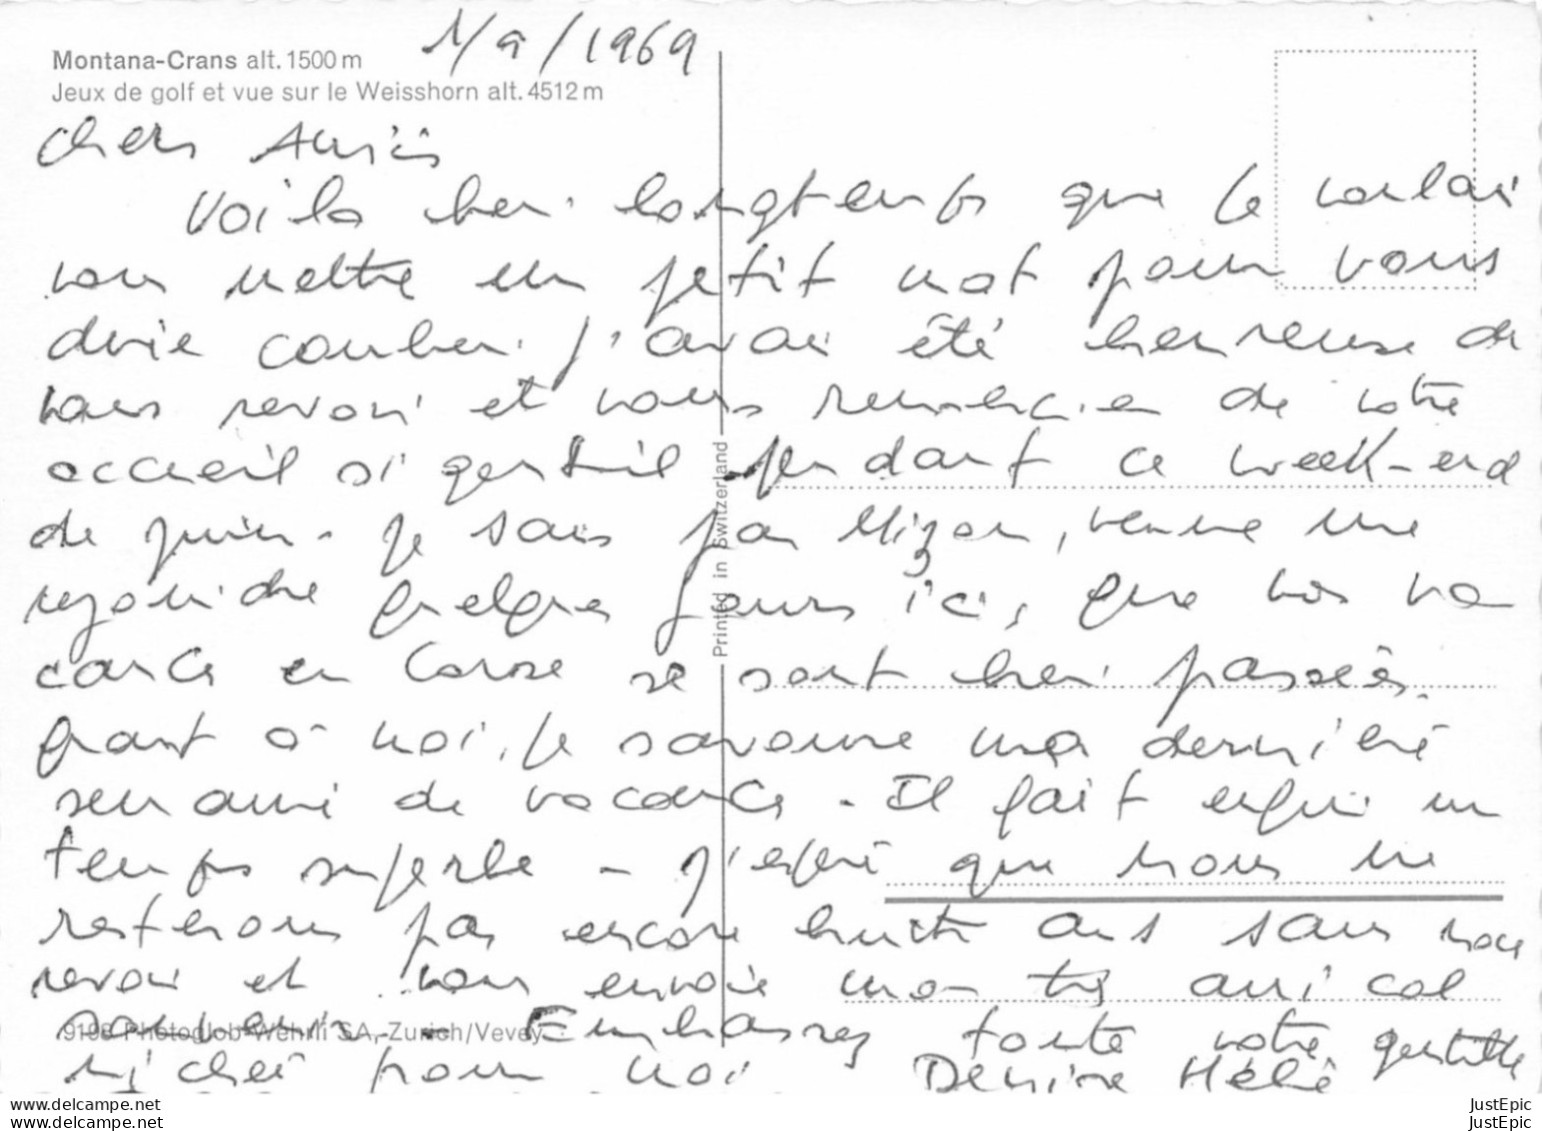 Montana-Crans alt. 1500 m
Jeux de golf et vue sur le Weisshorn alt. 4512 m
1/9/1969
Chers Amis
Voilà bien longtemps que je voulais
vous mettre un petit mot pour vous
dire combien j'avais été heureuse de
vous revoir et vous remercier de votre
accueil si gentil pendant ce week-end
de juin. Je sais par, venue me
rejoindre quelques jours ici, que vos va
cances en Corse se sont bien passées.
Quant à moi, je savoure ma dernière
semaine de vacances. Il fait enfin un
temps superbe - J'espère que nous ne
resterons pas encore huit ans sans nous
revoir et vous envoie mon très amical
souvenir. Embrassez toute votre gentille
nichée pour moi Denise Hélie
Printed in Switzerland
9198 Photoglob-Wehrli SA, Zurich/Vevey
delcampe.net
www.delcampe.net
JustEpic
JustEpic